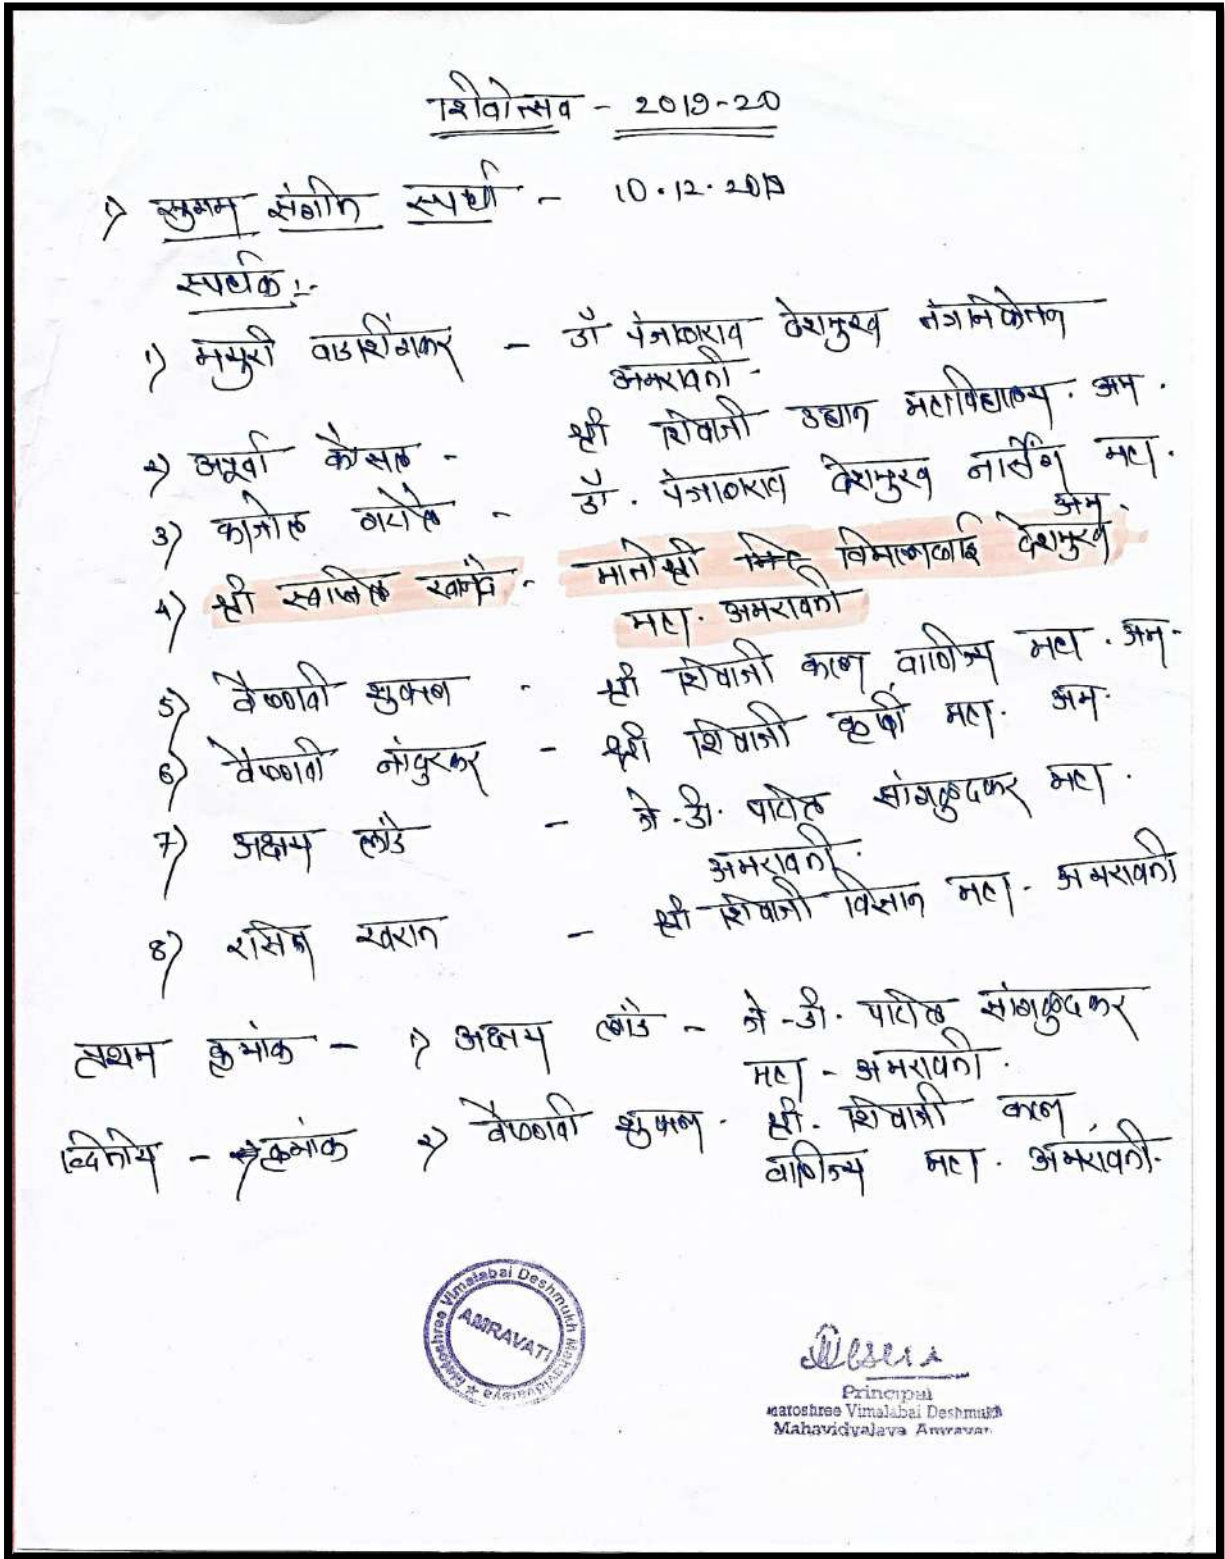 शिवोत्सव - 2019-20
१) सुगम संगीत स्पर्धा - 10.12.2019
स्पर्धक :-
१) मयुरी वाडशिंगकर - डॉ पंजाबराव देशमुख तंत्रनिकेतन
अमरावती -
२) अपूर्वा कौसल - श्री शिवाजी उद्यान महाविद्यालय. अम.
3) काजोल - डॉ. पंजाबराव देशमुख नर्सिंग महा.
अम.
4) श्री स्वप्निल खानंदे - मातोश्री विमलाबाई देशमुख
महा. अमरावती
5) वैष्णवी शुक्ला - श्री शिवाजी कला, वाणिज्य महा. अम-
6) वैष्णवी नांदुरकर - श्री शिवाजी कृषी महा. अम.
7) अक्षय लांडे - जे.डी. पाटील सांगळुदकर महा.
अमरावती.
8) रसिका खरात - श्री शिवाजी विज्ञान महा - अमरावती
प्रथम क्रमांक - १) अक्षय लांडे - जे-डी. पाटील सांगळुदकर
महा - अमरावती.
द्वितीय - क्रमांक २) वैष्णवी शुक्ला - श्री. शिवाजी कला,
वाणिज्य महा. अमरावती.
Matoshree Vimalabai Deshmukh Mahavidyalaya
AMRAVATI
Principal
Matoshree Vimalabai Deshmukh
Mahavidyalaya Amravati